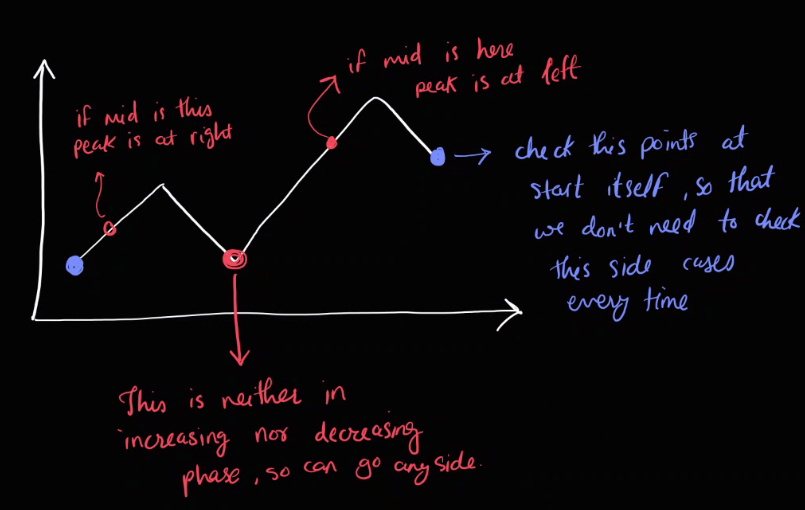 if mid is this
peak is at right
if mid is here
peak is at left
check this points at
start itself, so that
we don't need to check
this side cases
every time
This is neither in
increasing nor decreasing
phase, so can go any side.